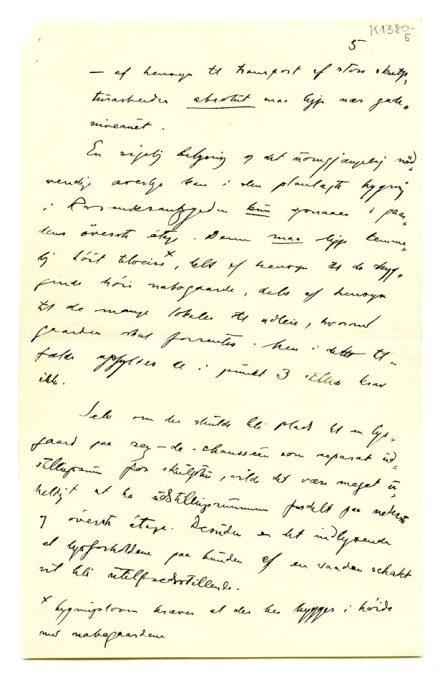 K1382-5
5
— af hensyn til transport af store skulp-
turarbeider absolut maa ligge nær gade-
niveauet.
En rigelig belysning og det uomgjængelig nød-
vendige overlys kan i den planlagte bygning
i Rosenkrantzgaden kun paaregnes i gaar-
dens överste étage. Denne maa ligge temme-
lig höit tilveirs x, dels af hensyn til de
höie nabogaarde, dels af hensyn
til de mange lokaler til udleie, hvormed
gaarden skal forrentes. Men i dette til-
fælde opfyldes de i punkt 3 stillede krav
ikke.
Selv om der skulde bli plads til en lys-
gaard paa rez-de-chausséen som separat ud-
stillingsrum for skulptur, vilde det være meget u-
heldigt at ha udstillingsrummene fordelt paa nederste
og överste étage. Desuden er det indlysende
at lysforholdene paa bunden af en saadan schakt
vil bli utilfredsstillende.
x bygningsloven kræver at der her bygges i höide
med nabogaardene